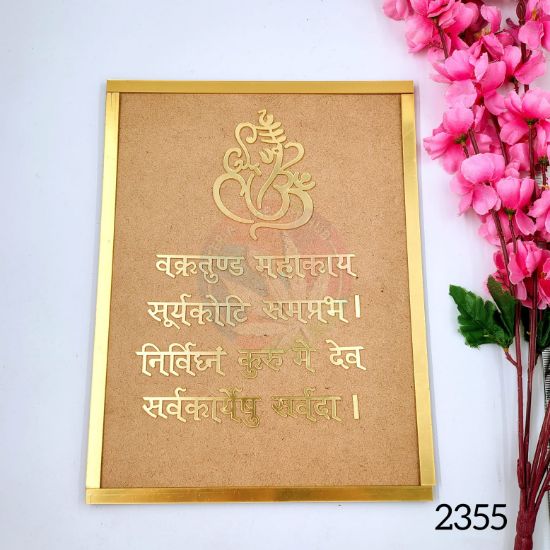 वक्रतुण्ड महाकाय
सूर्यकोटि समप्रभ।
निर्विघ्नं कुरु मे देव
सर्वकार्येषु सर्वदा।
2355